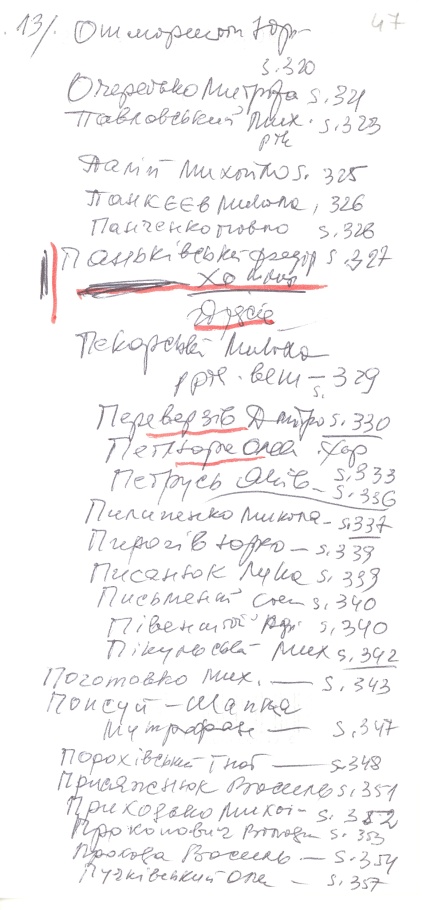 13/. Отмарштайн Юр- 47
s.320
Очередько Митрофа s. 321
Павловський Мих. s.323
ртк
Палій Михайло s. 325
Панкєєв Микола, 326
Панченко Павло s. 326
Паньківський Федір s.327
Хома
Пекарський Микола
s. 329
Переверзів Дмитро s.330
Петлюра Олел. Хар
s.333
Петрусь Яків - s.336
Пилипенко Микола - s.337
Пирогів Юрко - s. 339
Писанюк Лука s. 339
Письменний Степ s. 340
Півенштой s. 340
Пікульський Мих s. 342
Поготовко Мих. — s. 343
Понсуй - Шапка
Митрофан — s. 347
Порохівський Гнат — s.348
Присяжнюк Василь s. 351
Приходько Михай- s. 352
Прокопович Володи s. 353
Прохода Василь — s. 354
Пучківський Оле — s. 357